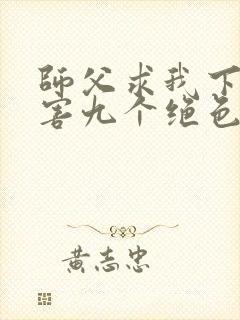 師父求我下
害九个绝色
黄志忠